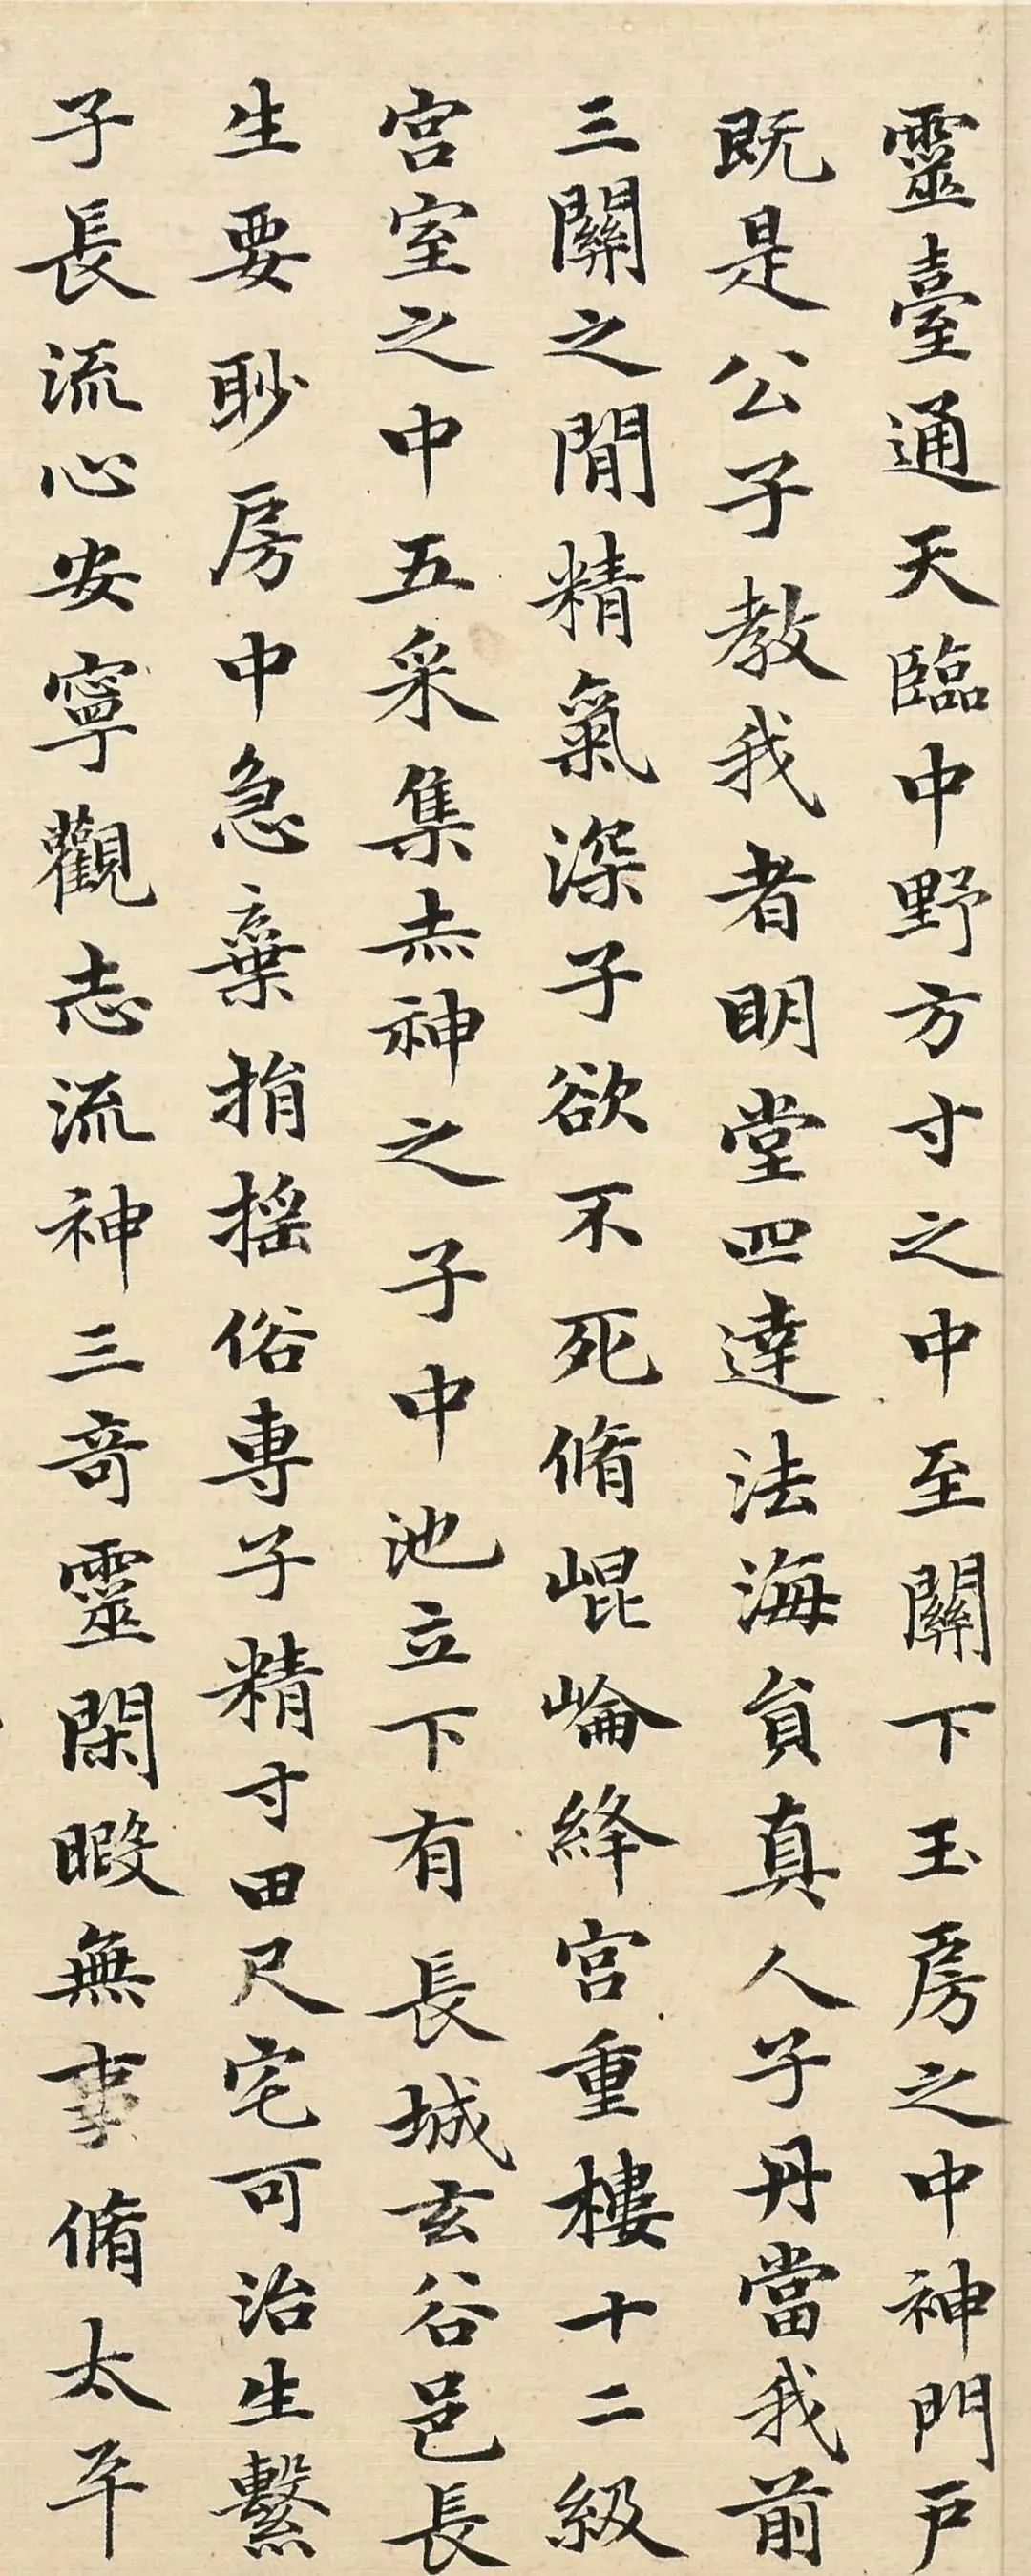 靈臺通天臨中野方寸之中至關下玉房之中神門戶
既是公子教我者明堂四達法海員真人子丹當我前
三關之間精氣深子欲不死脩崐崘絳宮重樓十二級
宮室之中五采集赤神之子中池立下有長城玄谷邑長
生要眇房中急棄捐搖俗專子精寸田尺宅可治生繫
子長流心安寧觀志流神三奇靈閑暇無事脩太平